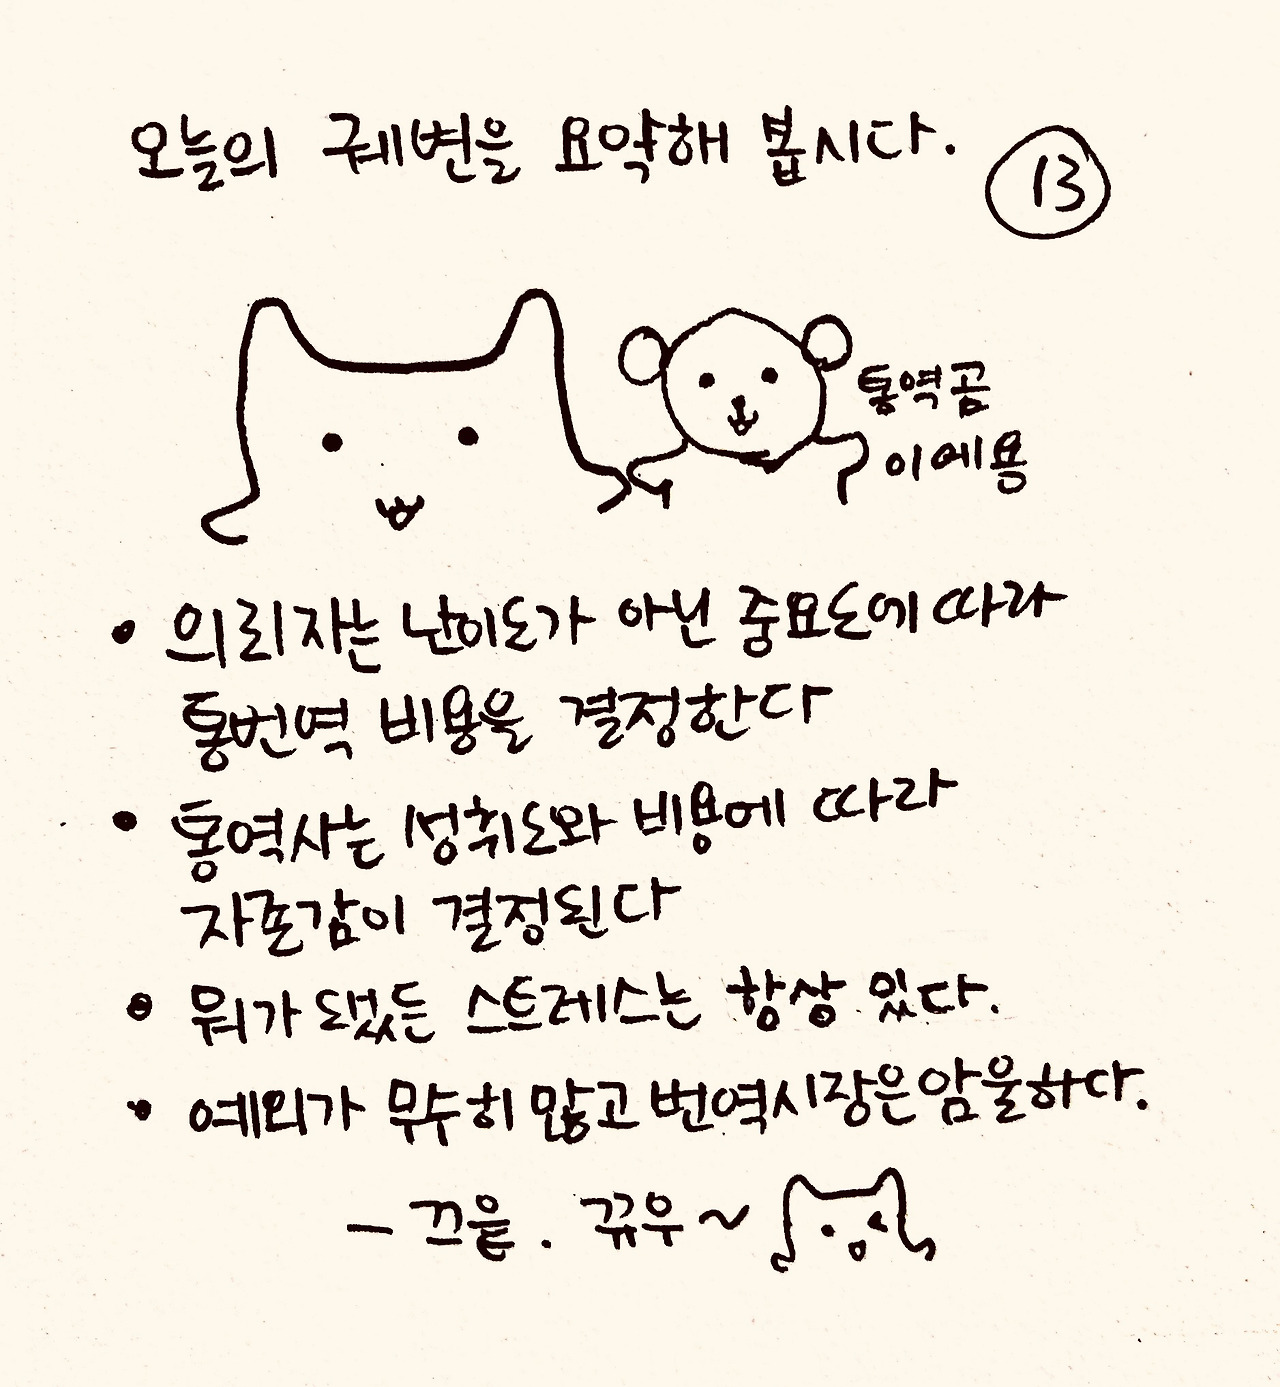 오늘의 궤변을 요약해 봅시다.
13
통역곰
이에용
• 의리자는 난이도가 아닌 중요도에 따라
통번역 비용을 결정한다
• 통역사는 성취도와 비용에 따라
자존감이 결정된다
• 뭐가 됐든 스트레스는 항상 있다.
• 예외가 무수히 많고 번역시장은 암울하다.
- 끄읕. 뀨우~